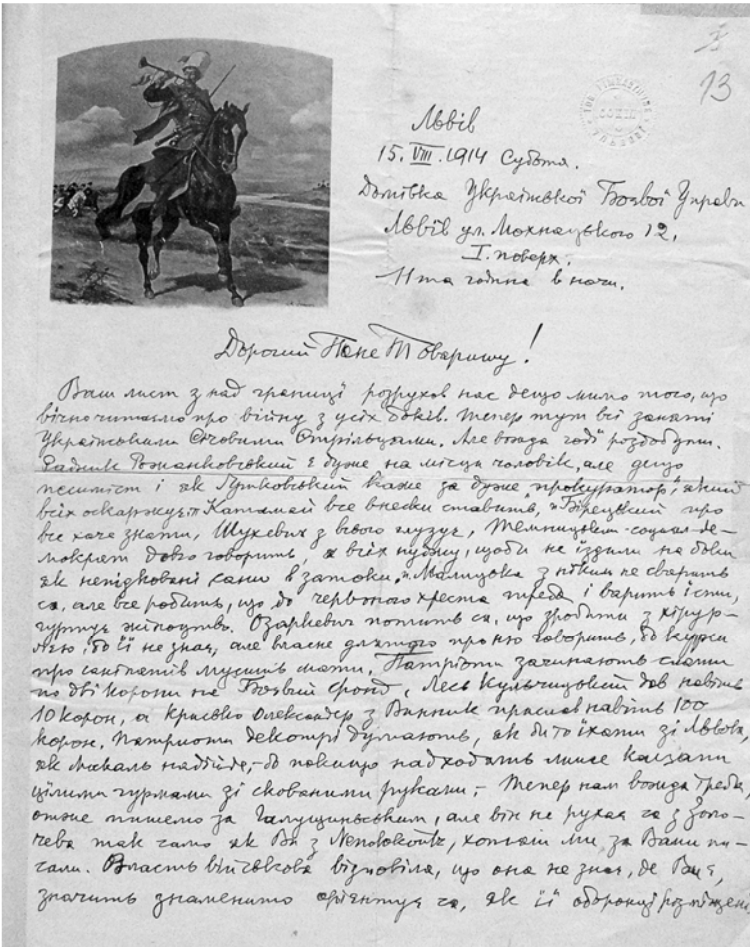 13
Львів
15. VIII. 1914 Субота.
Домівка Української Боєвої Управи
Львів ул. Мохнацького 12.
I. поверх.
11та година в ночи.
Дорогий Пане Товаришу!
Ваш лист з над границі розрухав нас дещо мимо того, що
вічно читаємо про війну з усіх боків. Тепер тут всі заняті
Українськими Січовими Стрільцями. Але вожда годі роздобути.
Радник Рожанковський є дуже на місци чоловік, але дещо
песиміст і як каже за дуже "прокуратор", який
всіх оскаржує." Катамай все внески ставить, "Бірецький про
все хоче знати, Шухевич з всього глузує, Темницький - соціал-де-
мократ довго говорить, а всіх нуджу, щоби не їздили на боки
як непідковані сани в затоки," Малицька з ніким не сварить
ся, але все робить, що до червоного хреста треба і варить їсти,
гуртує жіноцтво. Озаркевич потить ся, що зробити з хірур-
гією, бо її не знає, але власне для того про ню говорить, бо курси
про санітатів мусить мати. Патріоти зачинають слати
по дві корони на Боєвий фонд, Лесь Кульчицький дав навіть
10 корон, а Крисько Олександер з Винник прислав навіть 100
корон. Патриоти декотрі думають, як би то їхати зі Львова,
як москаль надійде, - бо покищо надходять лише кацапи
цілими гурмами зі скованими руками; - Тепер нам вожда треба,
отже пишемо за Галущинським, але він не рухає ся з Золо-
чева так само як Ви з Nepolokoutz, хотяй ми за Вами пи-
сали. Власть військова відповіла, що она не знає, де Ви є,
значить знаменито орієнтує ся, як її оборонці розміщені